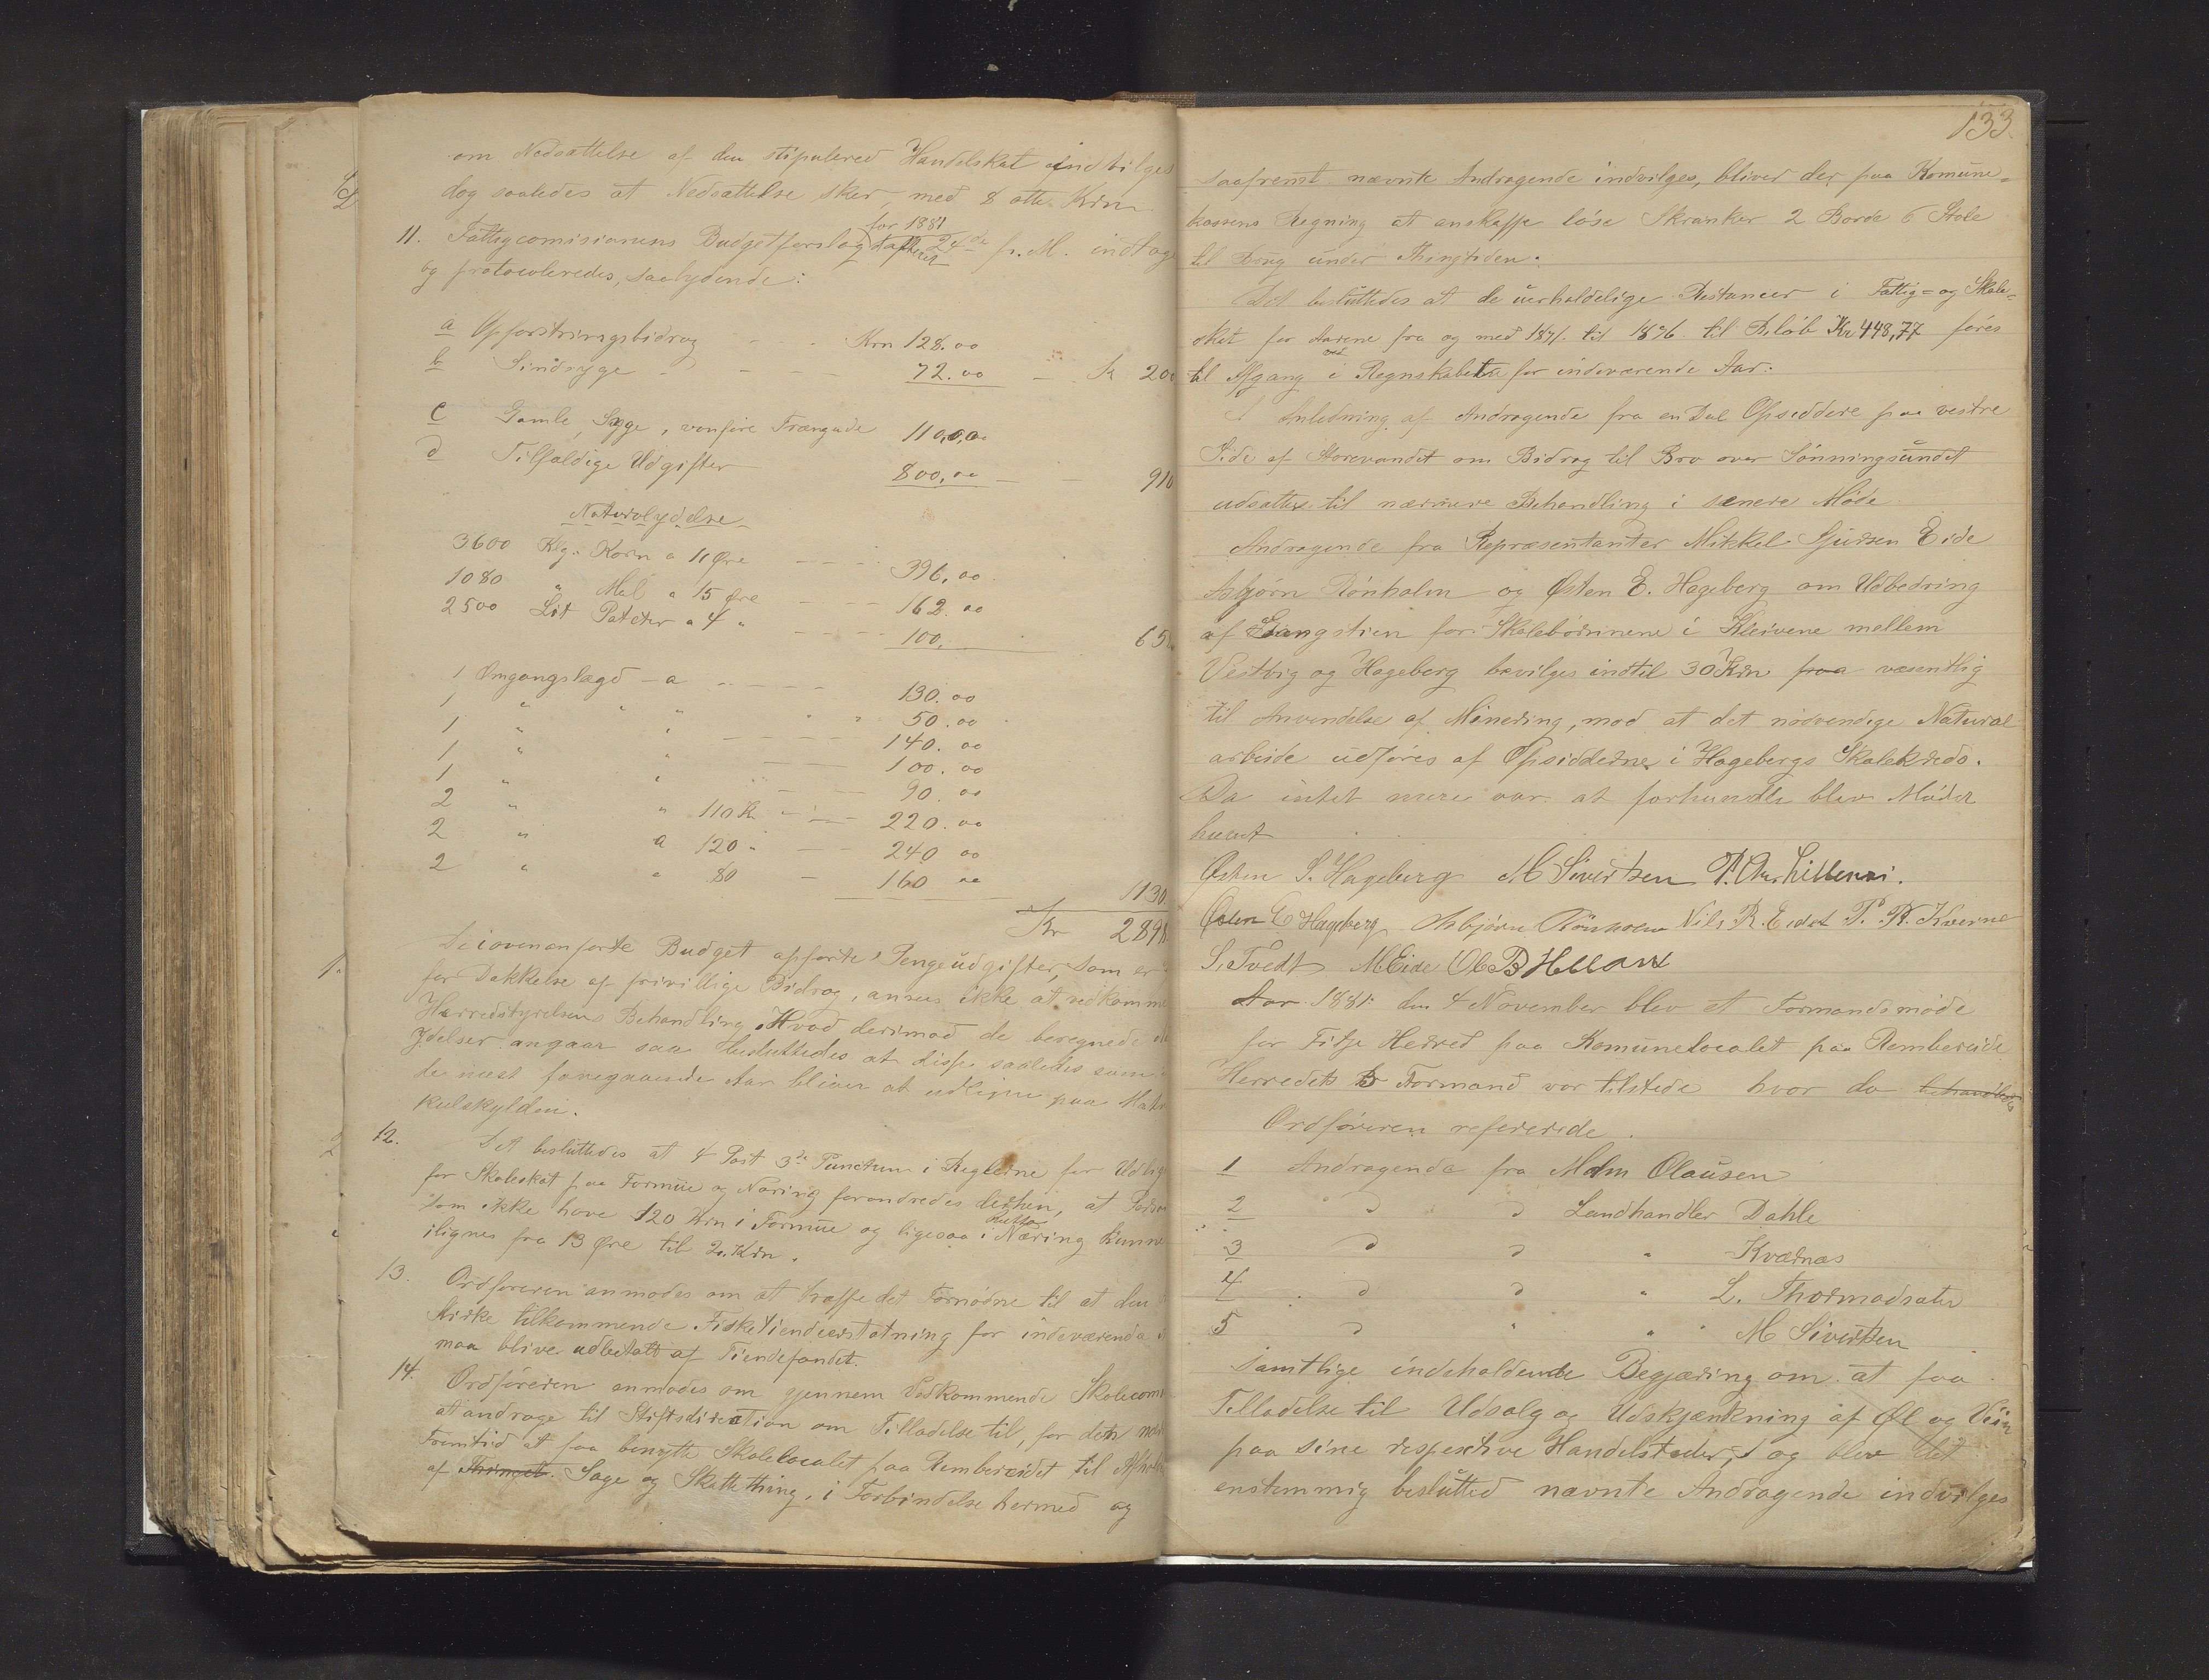 om Nedsættelse af den stipulered Handelskat indvilges
dog saaledes at Nedsættelse sker, med 8 otte Krn
for 1881
11. Fattigcomisionens Budgetforslag 24de f. M. indtoges
og protocoleredes, saalydende:
a Opfostringsbidrag - - - Krn 128.00
b Sindsyge - - - - 72.00 - Kr 200
c Gamle, Syge, vanføre Trængende 110,00
d Tilfældige Udgifter 800,00 - - 910
Naturalydelse
3600 Klg: Korn a 11 Øre - - - 396,00
1080 " Mel a 15 Øre - - - 162.00
2500 Lit Poteter a 4 " - - - 100, 65
1 Omgangslægd - a - - - - 130.00
1 " " " " " 50.00
1 " " - - - - 140.00
1 " " - - - 100.00
1 " " " - - 90.00
2 " " 110 Kr - - - 220.00
2 " a 120 " - - 240 00
2 " " 80 - 160 00
1130
Kr 2898
De i ovenanførte Budget opførte Pengeudgifter, som er
for Dækkelse af frivillige Bidrag, ansees ikke at vedkomme
Herredstyrelsens Behandling. Hvad derimod de beregnede
Ydelser angaar saa besluttedes at disse saaledes som i
de næst foregaaende Aar bliver at udligne paa Matri
kulskylden.
12. Det besluttedes at 4 Post 3de Punctum i Reglerne for Udlig
for Skoleskat paa Formue og Næring forandredes derhen, at
som ikke have 120 Krn i Formue og ligesaa i netto Næring kunne
ilignes fra 13 Øre til 2. Krn.
13. Ordføreren anmodes om at træffe det Fornødne til at den
Kirke tilkommende Fisketiendeerstatning for indeværende
maa blive udbetalt af Tiendefondet.
14. Ordføreren anmodes om gjennem Vedkommende Skolecom
at andrage til Stiftsdirection om Tilladelse til, for den
Fremtid at faa benytte Skolelocalet paa Rembereidet til Afhold
af Sage og Skattething, i Forbindelse hermed og
133.
saafremt nævnte Andragende indvilges, bliver der paa Komune-
kassens Regning at anskaffe løse Skranker 2 Borde 6 Stole
til Brug under Thingtiden.
Det besluttedes at de uerholdelige Restancer i Fattig- og Skole-
skat for Aarene fra og med 1871. til 1876. til Beløb Kr 448,77 føres
til Afgang i Regnskabet for indeværende Aar.
I Anledning af Andragende fra en Del Opsiddere paa vestre
Side af Storevandet om Bidrag til Bro over Sønningsundet
udsattes til nærmere Behandling i senere Møde
Andragende fra Repræsentanter Mikkel Sjursen Eide
Asbjørn Rønholm og Østen E. Hageberg om Udbedring
af Gangstien for Skolebørnnene i Kleivene mellem
Vestvig og Hageberg bevilges indtil 30 Krn paa væsentlig
til Anvendelse af Minering, mod at det nødvendige Natural
arbeide udføres af Opsidderne i Hagebergs Skolekreds.
Da intet mere var at forhandle blev Mødet
hævet
Østen S. Hageberg M Sivertsen P. Chr. Lillenæs.
Østen E Hageberg Asbjørn Rönholm Nils R. Eidet P. R. Kverne
S. Tvedt M Eide Ole B Helland
Aar 1881: den 4 November blev et Formandsmøde
for Fitje Herred paa Komunelocalet paa Rembereide
Herredets Formand var tilstede hvor da behandledes
Ordføreren refererede.
1 Andragende fra Mdm Olausen
2 d d Landhandler Dahle
3 d d " Kværnæs
4 d d " L. Thormodsæter
5 d " " " M Sivertsen
samtlige indeholdende Begjæring om at faa
Tilladelse til Udsalg og Udskjænkning af Øl og Viin
paa sine respective Handelsteder, og blev det
enstemmig beslutted nævnte Andragende indvilges